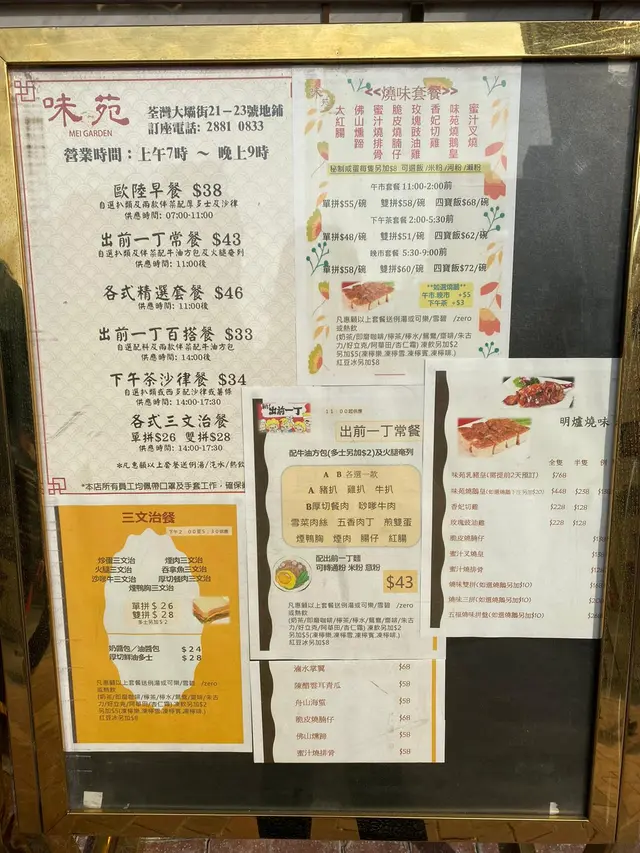 味苑
MEI GARDEN
荃灣大壩街21-23號地鋪
訂座電話: 2881 0833
營業時間：上午7時 ～ 晚上9時
歐陸早餐 $38
自選扒類及兩款伴菜配厚多士及沙律
供應時間: 07:00-11:00
出前一丁常餐 $43
自選扒類及伴菜配牛油方包及火腿奄列
供應時間: 11:00後
各式精選套餐 $46
供應時間: 11:00後
出前一丁百搭餐 $33
自選配料及兩款伴菜配牛油方包
供應時間: 14:00後
下午茶沙律餐 $34
自選扒類或西多配沙律或薯條
供應時間: 14:00-17:30
各式三文治餐
單拼$26 雙拼$28
供應時間: 14:00-17:30
*凡惠顧以上餐送例湯/汽水/熱飲
*本店所有員工均佩帶口罩及手套工作，確保
<<燒味套餐>>
蜜汁叉燒
味苑燒鵝皇
香妃切雞
玫瑰豉油雞
脆皮燒腩仔
蜜汁燒排骨
佛山燻蹄
大紅腸
秘制咸蛋每隻另加$8 可選飯/米粉/河粉/瀨粉
午市套餐 11:00-2:00前
單拼$55/碗 雙拼$58/碗 四寶飯$68/碗
下午茶套餐 2:00-5:30前
單拼$48/碗 雙拼$51/碗 四寶飯$62/碗
晚市套餐 5:30-9:00前
單拼$58/碗 雙拼$60/碗 四寶飯$72/碗
**如選燒鵝**
午市.晚市 +$5
下午茶 +$3
凡惠顧以上套餐送例湯或可樂/雪碧 /zero
或熱飲
(奶茶/即磨咖啡/檸茶/檸水/鴛鴦/齋啡/朱古
力/好立克/阿華田/杏仁霜) 凍飲另加$2
另加$5(凍檸樂,凍檸雪,凍檸賓,凍檸啡.)
紅豆冰另加$8
出前一丁
11:00起供應
出前一丁常餐
配牛油方包(多士另加$2)及火腿奄列
A B 各選一款
A 豬扒 雞扒 牛扒
B厚切餐肉 砂嗲牛肉
雪菜肉絲 五香肉丁 煎雙蛋
煙鴨胸 煙肉 腸仔 紅腸
配出前一丁麵
可轉通粉 米粉 意粉
$43
凡惠顧以上套餐送例湯或可樂/雪碧 /zero
或熱飲
(奶茶/即磨咖啡/檸茶/檸水/鴛鴦/齋啡/朱古
力/好立克/阿華田/杏仁霜) 凍飲另加$2
另加$5(凍檸樂,凍檸雪,凍檸賓,凍檸啡.)
紅豆冰另加$8
明爐燒味
全隻 半隻 例
味苑乳豬皇(需提前2天預訂) $768
味苑燒鵝皇 $448 $258
香妃切雞 $228 $128
玫瑰豉油雞 $228 $128
脆皮燒腩仔
蜜汁叉燒皇
蜜汁燒排骨
燒味雙拼(如選燒鵝另加$10)
燒味三拼(如選燒鵝另加$10)
五福燒味拼盤(如選燒鵝另加$10)
三文治餐
下午2:00至5:30供應
炒蛋三文治 煙肉三文治
火腿三文治 吞拿魚三文治
沙嗲牛三文治 厚切餐肉三文治
煙鴨胸三文治
單拼 $ 26
雙拼 $ 28
多士另加$2
奶醬包/油醬包 $ 24
厚切鮮油多士 $ 28
凡惠顧以上套餐送例湯或可樂/雪碧 /zero
或熱飲
(奶茶/即磨咖啡/檸茶/檸水/鴛鴦/齋啡/朱古
力/好立克/阿華田/杏仁霜) 凍飲另加$2
另加$5(凍檸樂,凍檸雪,凍檸賓,凍檸啡.)
紅豆冰另加$8
滷水掌翼 $68
陳醋雲耳青瓜 $58
舟山海蜇 $58
脆皮燒腩仔 $68
佛山燻蹄 $58
蜜汁燒排骨 $58